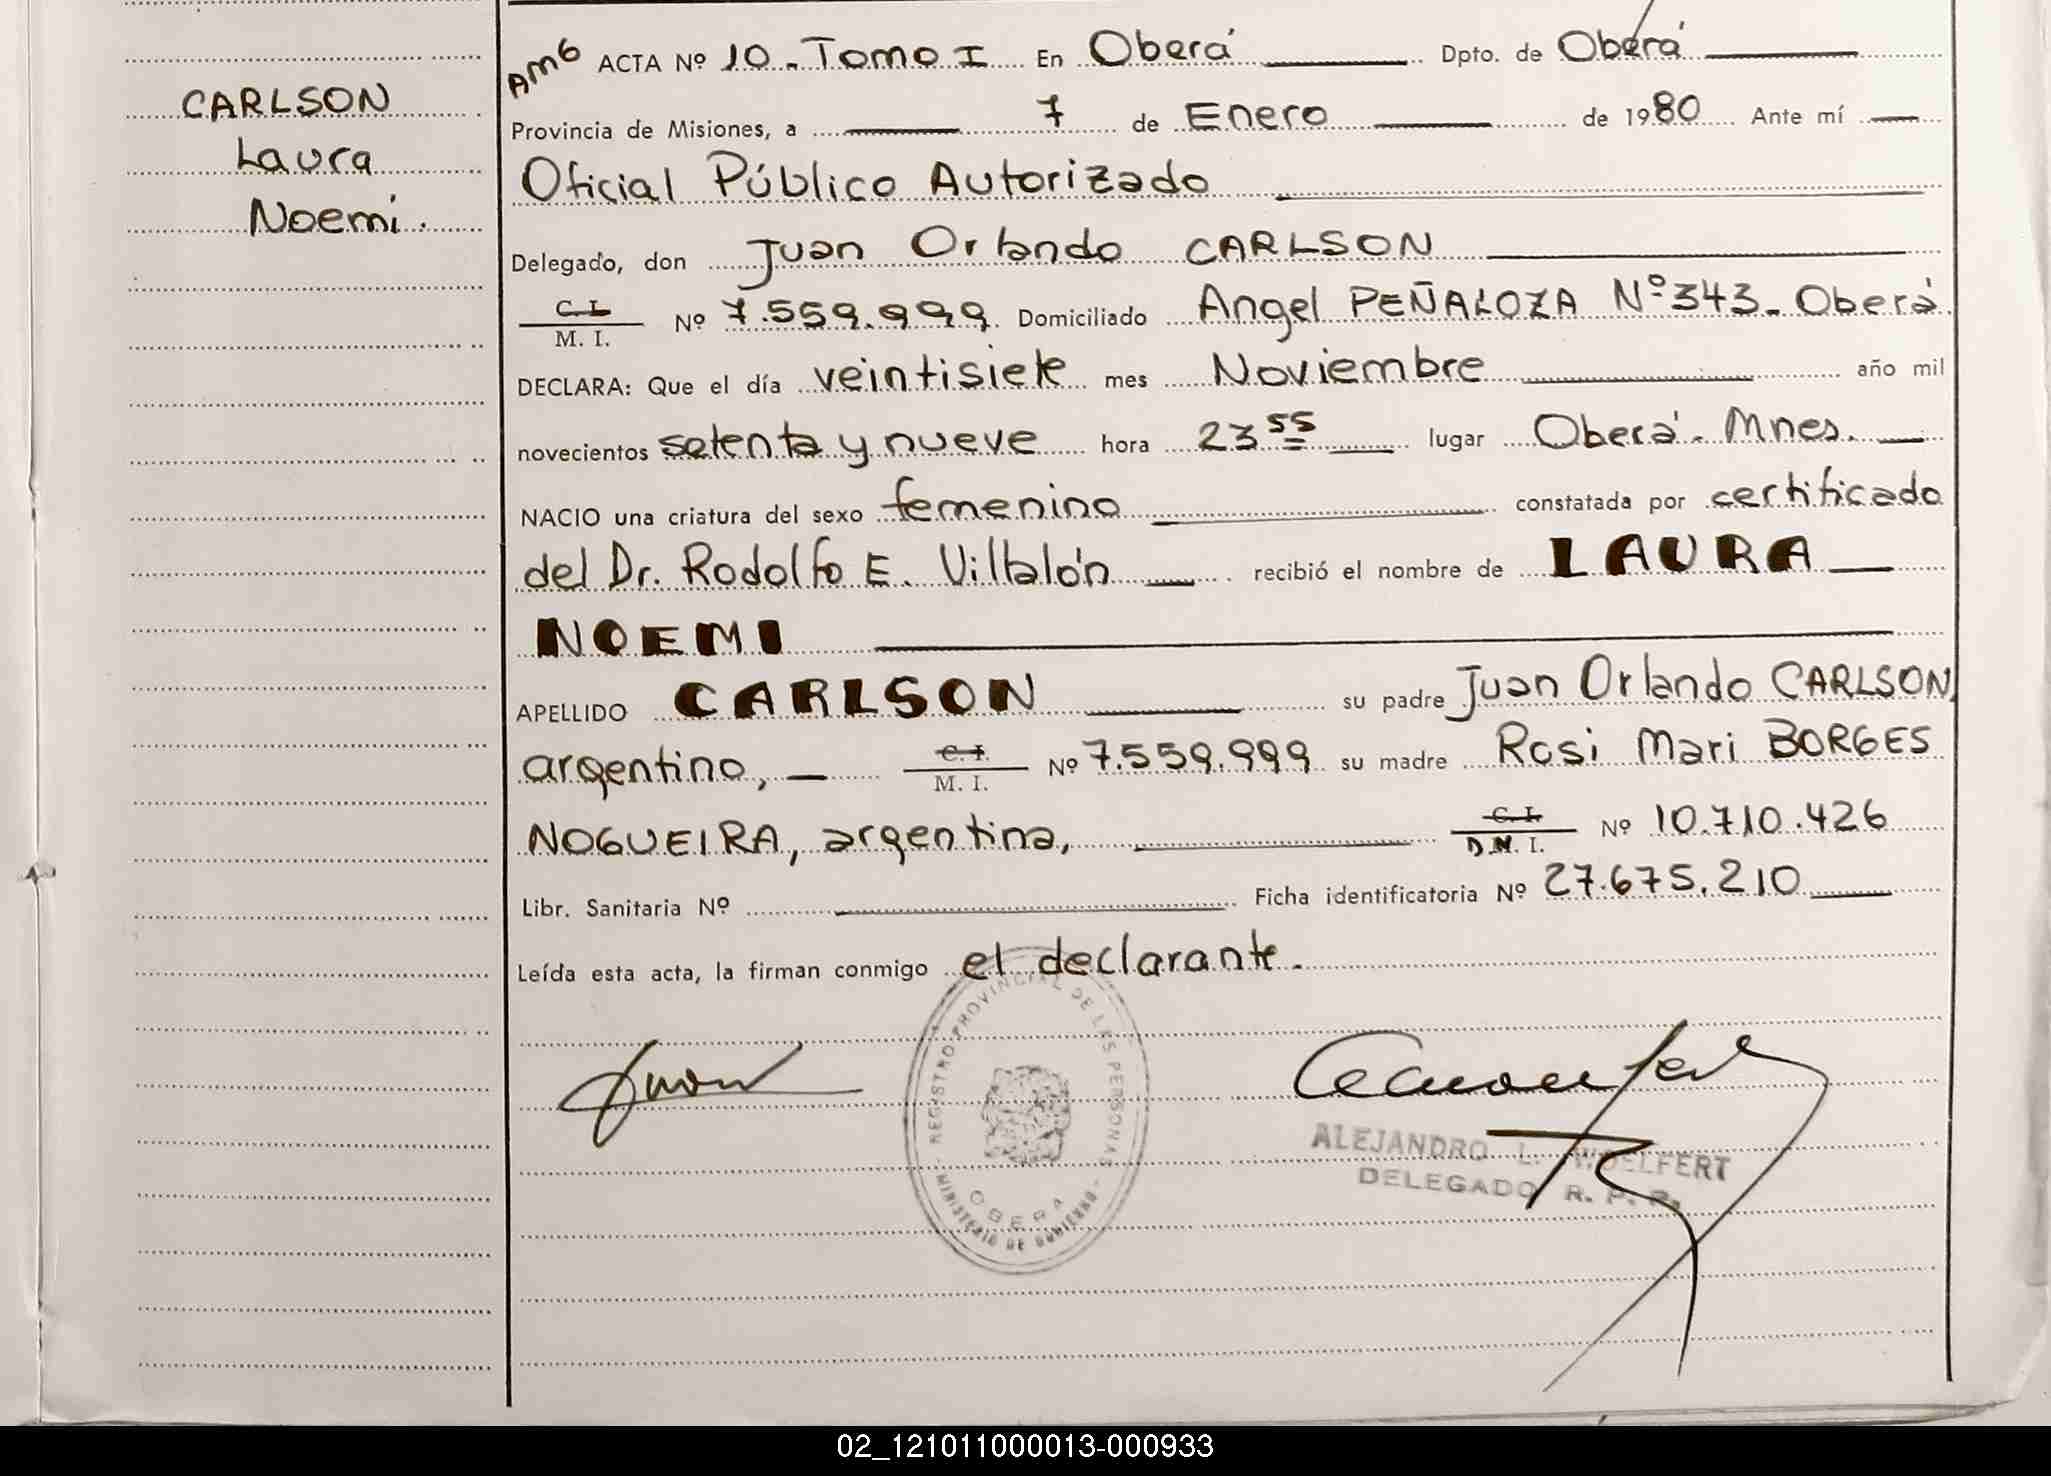 CARLSON
Laura
Noemí.
AMG ACTA Nº 10. Tomo I En Oberá Dpto. de Oberá
Provincia de Misiones, a 7 de Enero de 1980 Ante mí
Oficial Público Autorizado
Delegado, don Juan Orlando CARLSON
C. I. M. I. Nº 7.559.999 Domiciliado Angel PEÑALOZA Nº 343. Oberá
DECLARA: Que el día veintisiete mes Noviembre año mil
novecientos setenta y nueve hora 23 55 lugar Oberá. Mnes.
NACIO una criatura del sexo femenino constatada por certificado
del Dr. Rodolfo E. Villalón recibió el nombre de LAURA
NOEMI
APELLIDO CARLSON su padre Juan Orlando CARLSON,
argentino, C. I. M. I. Nº 7.559.999 su madre Rosi Mari BORGES
NOGUEIRA, argentina, C. I. D.N. I. Nº 10.710.426
Libr. Sanitaria Nº Ficha identificatoria Nº 27.675.210
Leída esta acta, la firman conmigo el declarante.
REGISTRO PROVINCIAL DE LES PERSONAS
MINISTERIO DE GOBIERNO
OBERA
ALEJANDRO L. WOELFERT
DELEGADO R. P. P.
02_121011000013-000933